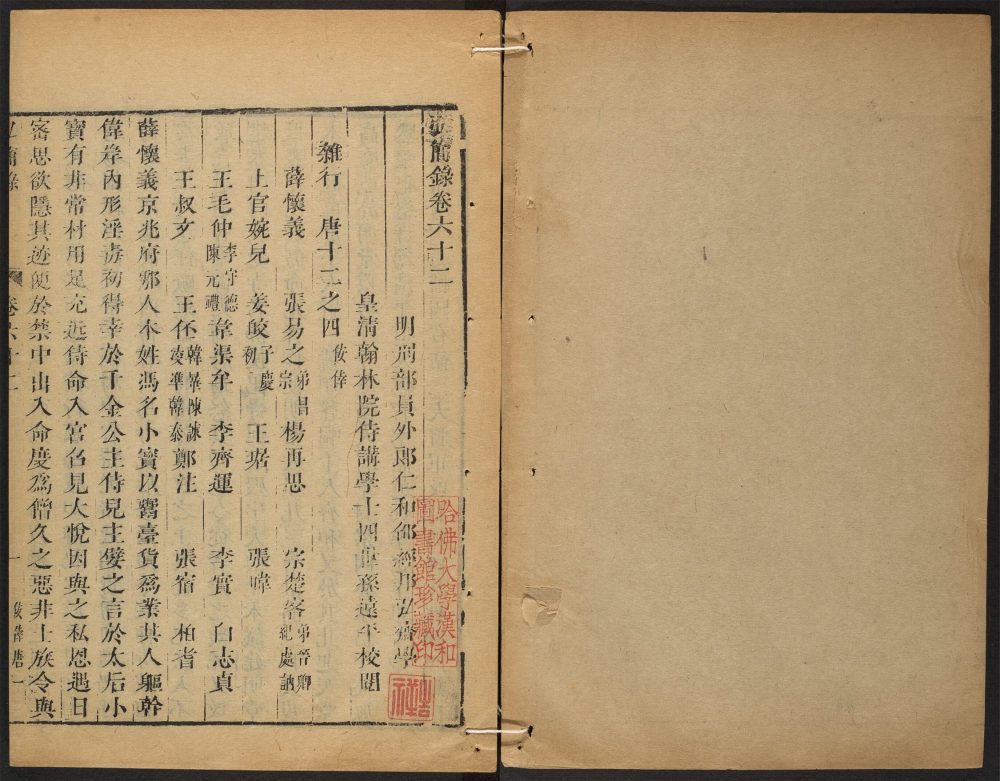 弘簡錄卷六十二
明刑部員外郎仁和邵經邦弘齋學
皇清翰林院侍講學士四世孫遠平校閱
雜行 唐十二之四 佞倖
薛懷義 張易之 弟昌宗 楊再思 宗楚客 弟晉卿 紀處訥
上官婉兒 姜皎 子慶初 王琚 張暐
王毛仲 李守德 陳元禮 韋渠牟 李齊運 李實 白志貞
王叔文 王伾 韓曅 陳諫 凌準 韓泰 鄭注 張宿 柏耆
薛懷義京兆府鄠人本姓馮名小寶以鬻臺貨為業其人軀幹
偉岸內形淫毒初得幸於千金公主侍兒主發之言於太后小
寶有非常材用是充近侍命入宮召見大悅因與之私恩遇日
密思欲隱其迹便於禁中出入命度為僧久之惡非士族令與
弘簡錄 卷六十二 一
哈佛大學漢和圖書館珍藏印